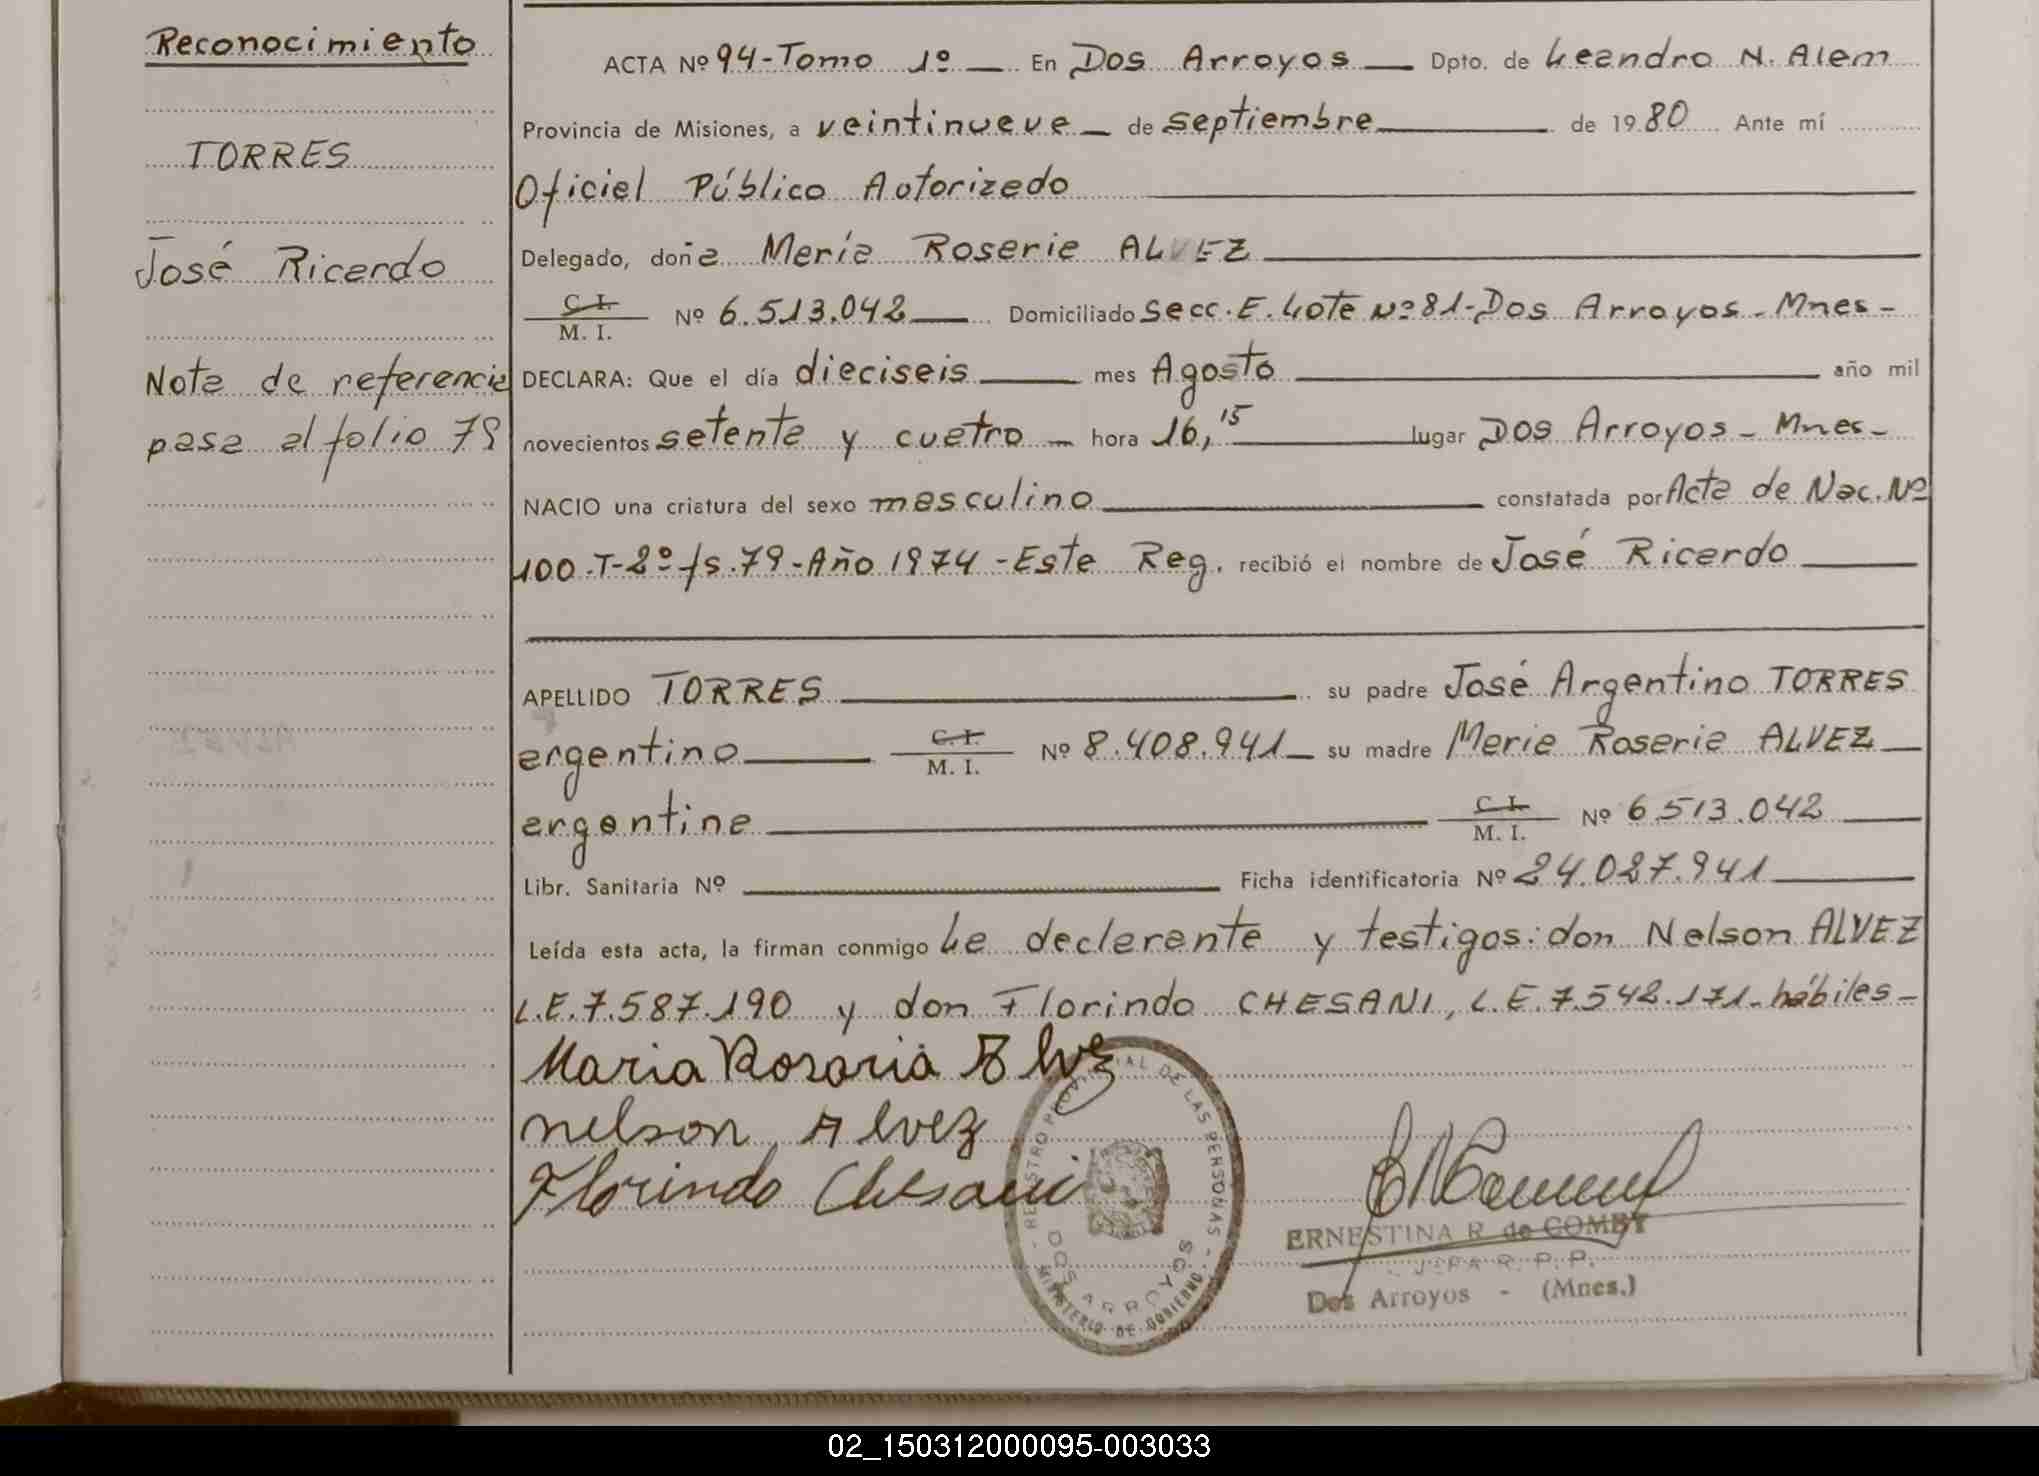 Reconocimiento
TORRES
José Ricardo
Nota de referencia
pasa al folio 79
ACTA Nº 94-Tomo 1º En Dos Arroyos Dpto. de Leandro N. Alem
Provincia de Misiones, a veintinueve de septiembre de 1980 Ante mí
Oficial Público Autorizado
Delegado, doña María Rosaria ALVEZ
C. I.
M. I. Nº 6.513.042 Domiciliado Secc. E. Lote Nº 81-Dos Arroyos-Mnes-
DECLARA: Que el día dieciseis mes Agosto año mil
novecientos setenta y cuatro hora 16,15 lugar Dos Arroyos-Mnes-
NACIO una criatura del sexo masculino constatada por Acta de Nac. Nº
100-T-2º-fs.79-Año 1974-Este Reg. recibió el nombre de José Ricardo
APELLIDO TORRES su padre José Argentino TORRES
argentino C. I. M. I. Nº 8.408.941 su madre Maria Rosaria ALVEZ
argentina C. I. M. I. Nº 6.513.042
Libr. Sanitaria Nº Ficha identificatoria Nº 24.027.941
Leída esta acta, la firman conmigo La declarante y testigos: don Nelson ALVEZ
L.E. 7.587.190 y don Florindo CHESANI, L.E. 7.542.171-hábiles-
Maria Rosaria Alvez
nelson Alvez
Florindo Chesani
REGISTRO PROVINCIAL DE LAS PERSONAS - MINISTERIO DE GOBIERNO -
DOS ARROYOS
ERNESTINA R. de COMBY
JEFA R. P. P.
Dos Arroyos - (Mnes.)
02_150312000095-003033